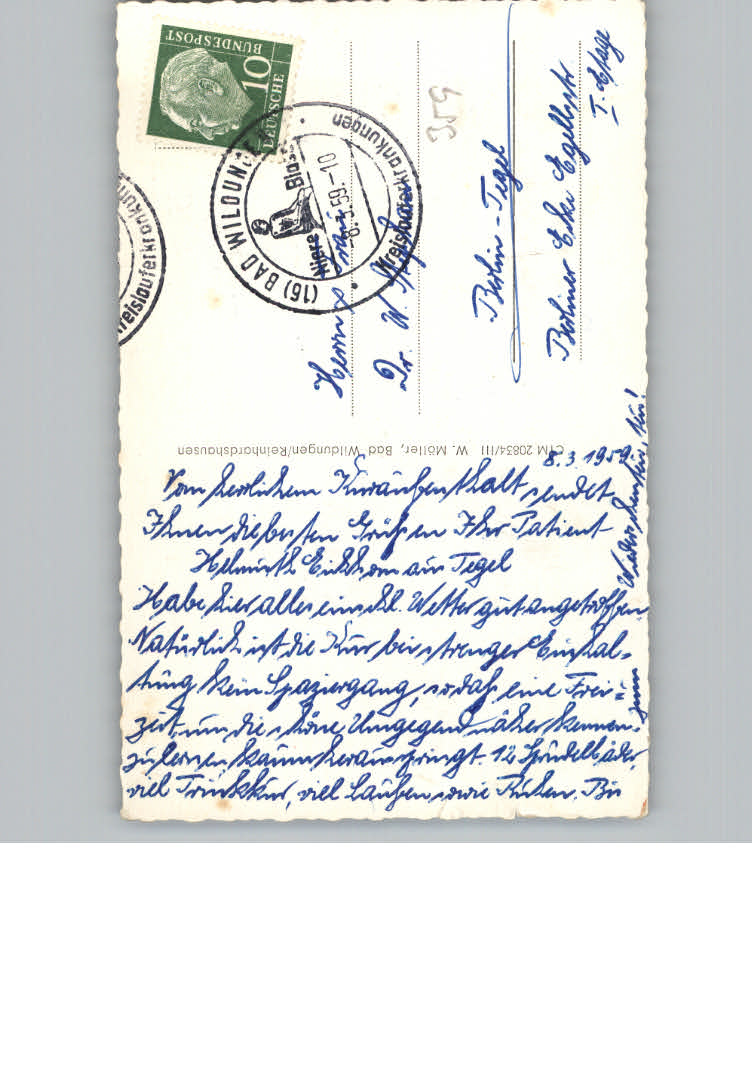 DEUTSCHE
BUNDESPOST
10
(16) BAD WILDUNGEN
Niere Blase
-8.3.59.-10
Kreislauferkrankungen
Kreislauferkrankun
359
Herrn &
Dr. W.
Berlin-Tegel
Berliner Ecke Egellsstr
I. Etage
CTM 20834/III W. Möller, Bad Wildungen/Reinhardshausen
8.3.1959.
Vom herrlichen Kuraufenthalt sendet
Ihnen die besten Grüßen Ihr Patient
Helmuth Eickhorn aus Tegel
Habe hier alles einschl. Wetter gut angetroffen.
Natürlich ist die Kur bei strenger Einhal-
tung kein Spaziergang, sodaß eine Frei-
zeit um die schöne Umgegend näher kennen-
zulernen kaum herausspringt. 12 Sprudelbäder,
viel Trinkkur, viel Laufen sowie Ruhen. Bis
zum
Wiedersehen